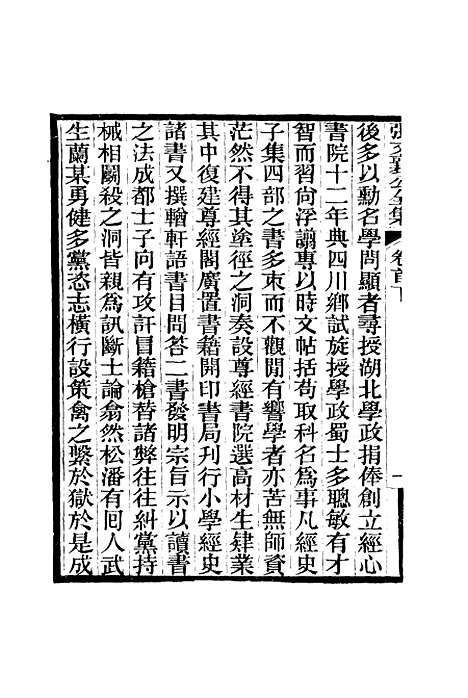 張文襄公全集 卷首下 一
後多以勳名學問顯者尋授湖北學政捐俸創立經心
書院十二年典四川鄉試旋授學政蜀士多聰敏有才
智而習尚浮譾專以時文帖括苟取科名爲事凡經史
子集四部之書多束而不觀閒有嚮學者亦苦無師資
茫然不得其途徑之洞奏設尊經書院選高材生肄業
其中復建尊經閣廣置書籍開印書局刊行小學經史
諸書又撰輶軒語書目問答二書發明宗旨示以讀書
之法成都士子向有攻訐冒籍槍替諸弊往往糾黨持
械相鬬殺之洞皆親爲訊斷士論翕然松潘有囘人武
生蘭某勇健多黨恣志橫行設策禽之繫於獄於是成